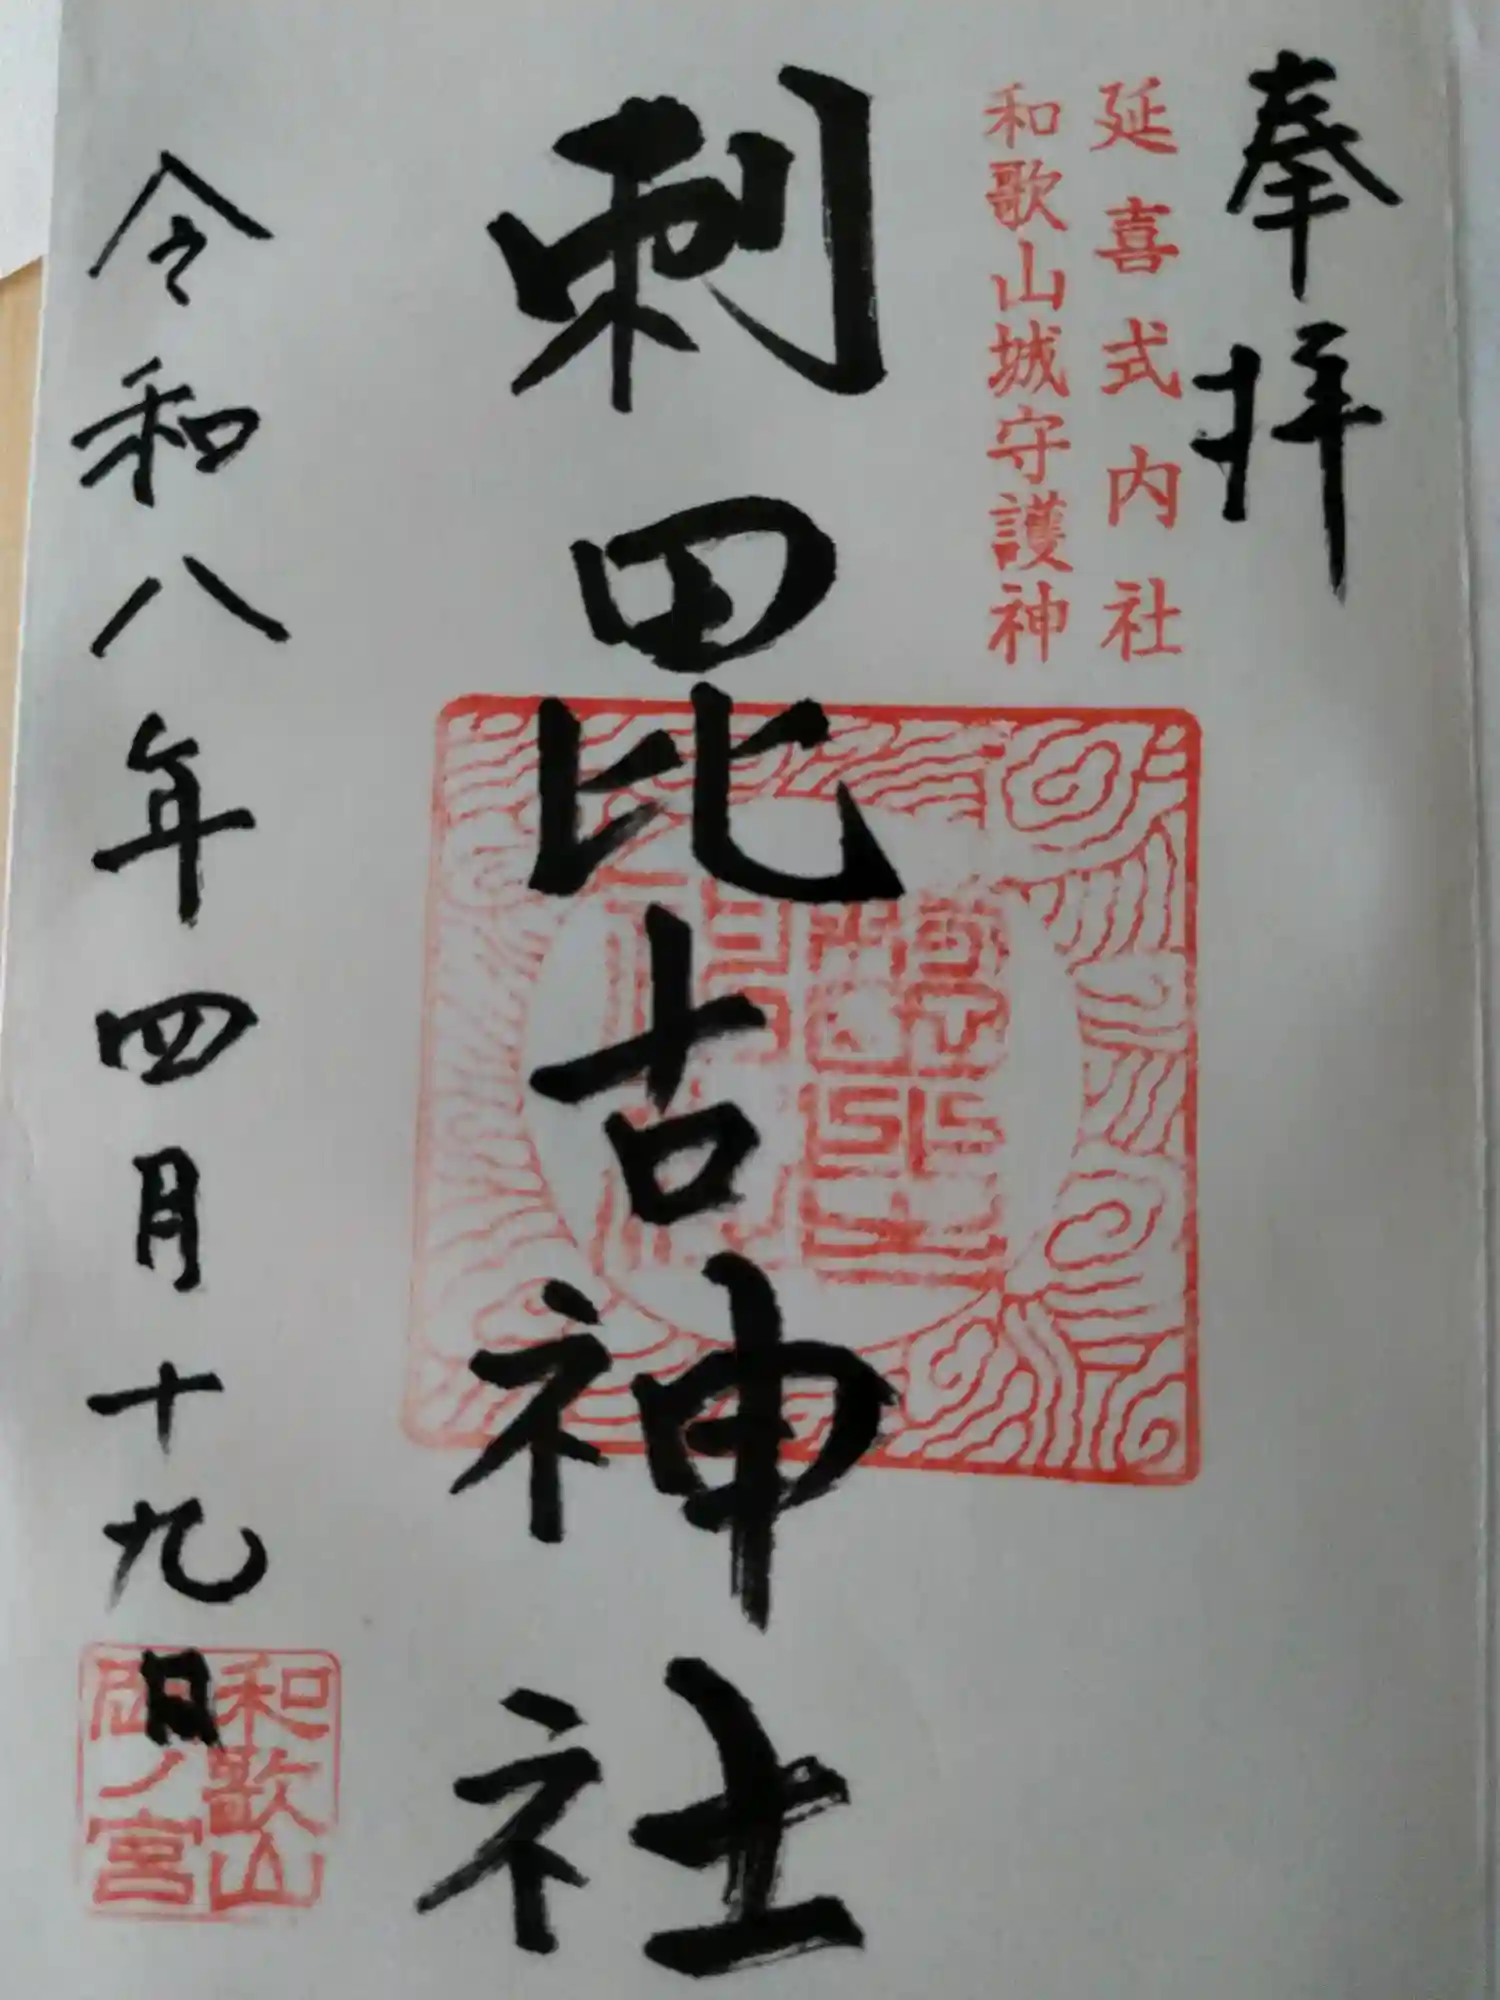 奉拝
延喜式内社
和歌山城守護神
刺田比古神社
令和八年四月十九日
和歌山
岡ノ宮